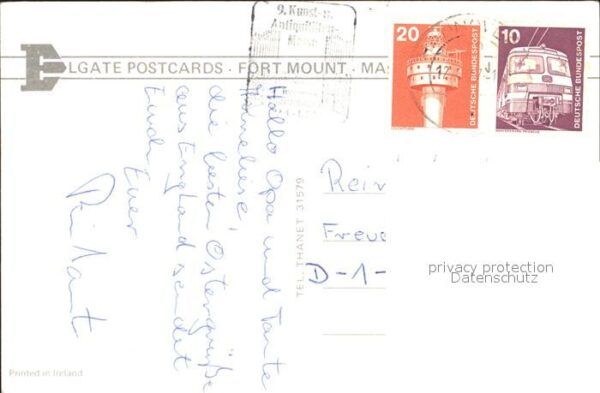 9. Kunst- u.
Antiquitäten-
Messe
20
DEUTSCHE BUNDESPOST
10
DEUTSCHE BUNDESPOST
ELGATE POSTCARDS - FORT MOUNT,
Hallo Opa und Tante
Anneliese!
die besten Ostergrüße
aus England sendet
Euch Euer
TEL. THANET 31579
Rein
Freu
D-1-
privacy protection
Datenschutz
Printed in Ireland